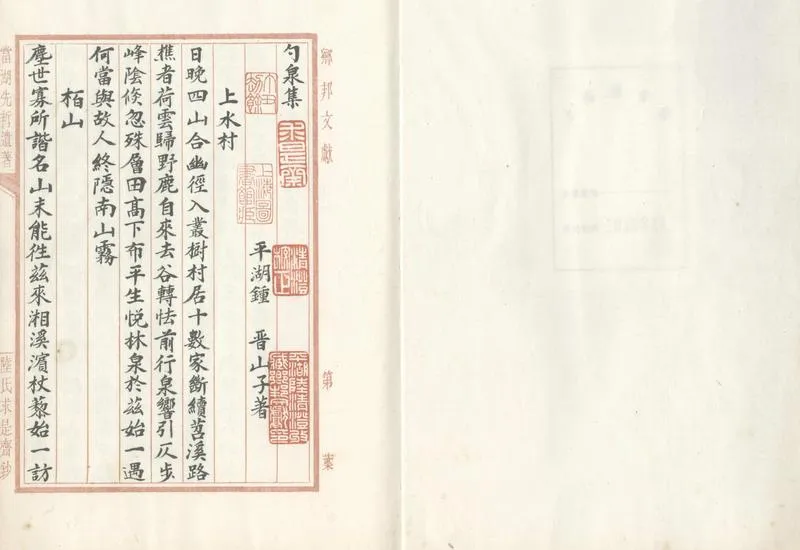 鄉邦文獻
第
葉
勺泉集
平湖鍾 晋山子著
上水村
日晚四山合幽徑入叢樹村居十數家斷續苕溪路
樵者荷雲歸野鹿自來去谷轉怯前行泉響引仄步
峰陰倏忽殊層田高下布平生悅林泉於茲始一遇
何當與故人終隱南山霧
栢山
塵世寡所諧名山未能徃茲來湘溪濱杖藜始一訪
當湖先哲遺著
陸氏求是齋鈔
求是齋
上海圖書館藏